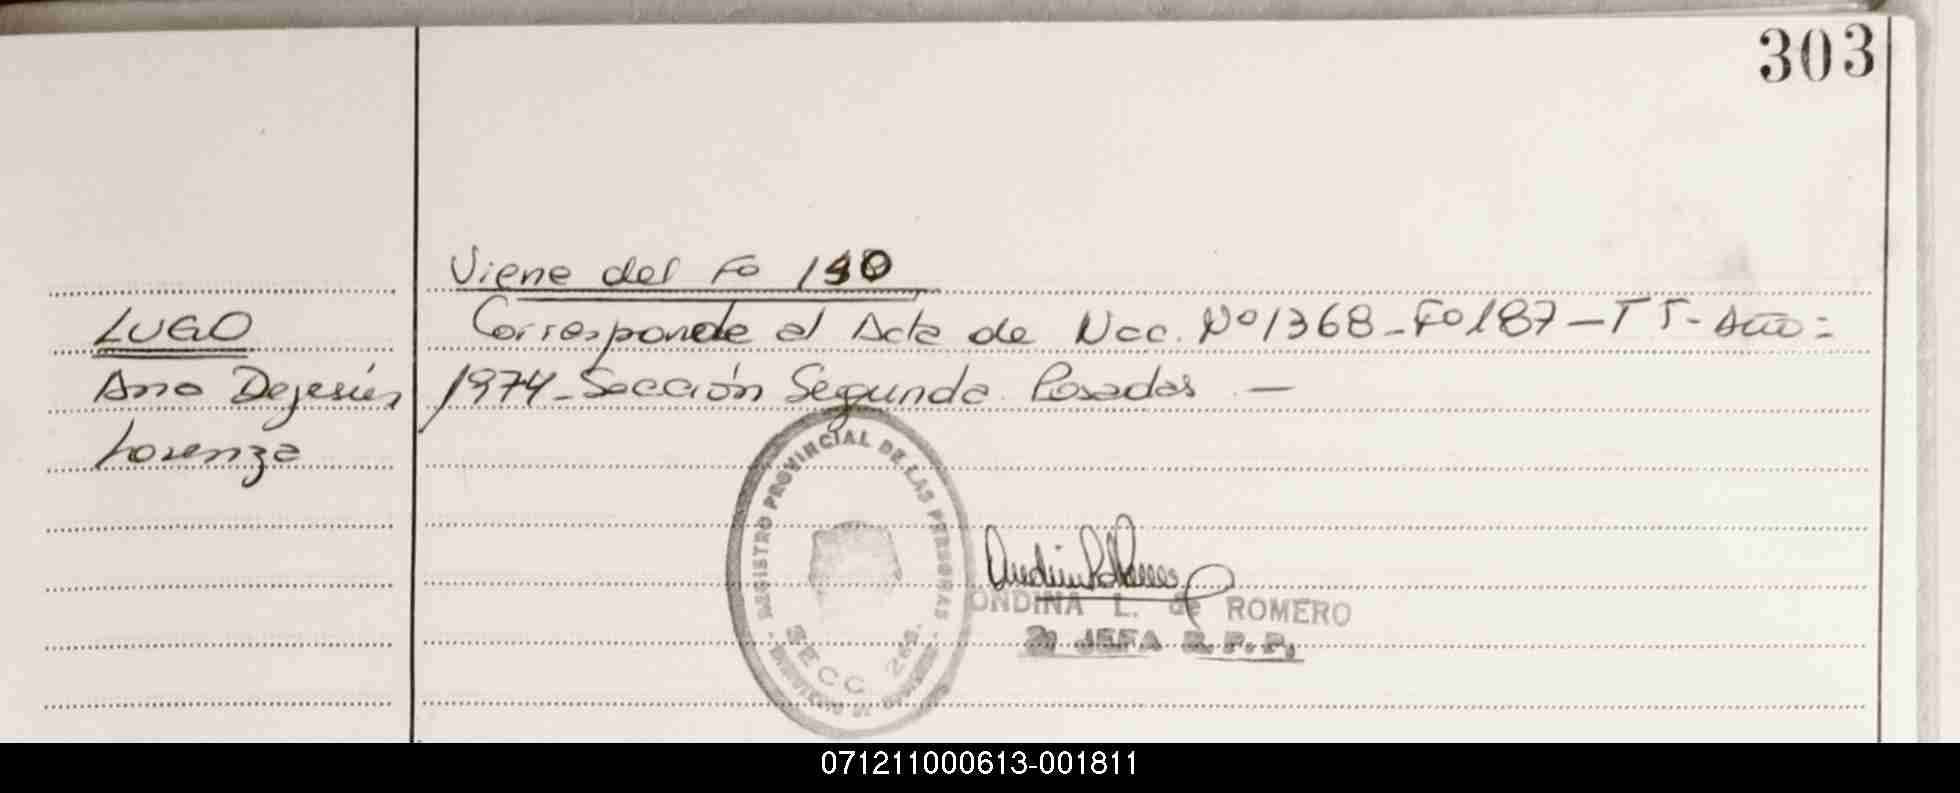 303
Viene del Fo 190
LUGO
Corresponde al Acta de Nac. Nº1368-Fo187-TT-Año=
Ana Dejesús
1974-Sección Segunda Posadas -
Lorenza
REGISTRO PROVINCIAL DE LAS PERSONAS
SECC 2da.
ONDINA L. de ROMERO
JEFA R.P.P.
071211000613-001811